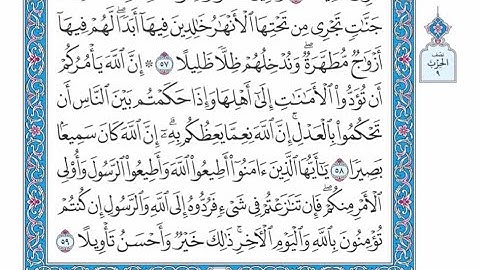 جَنَّٰتٖ تَجۡرِي مِن تَحۡتِهَا ٱلۡأَنۡهَٰرُ خَٰلِدِينَ فِيهَآ أَبَدٗاۖ لَّهُمۡ فِيهَآ
أَزۡوَٰجٞ مُّطَهَّرَةٞۖ وَنُدۡخِلُهُمۡ ظِلّٗا ظَلِيلًا ٥٧ ۞ إِنَّ ٱللَّهَ يَأۡمُرُكُمۡ
أَن تُؤَدُّواْ ٱلۡأَمَٰنَٰتِ إِلَىٰٓ أَهۡلِهَا وَإِذَا حَكَمۡتُم بَيۡنَ ٱلنَّاسِ أَن
تَحۡكُمُواْ بِٱلۡعَدۡلِۚ إِنَّ ٱللَّهَ نِعِمَّا يَعِظُكُم بِهِۦٓۗ إِنَّ ٱللَّهَ كَانَ سَمِيعَۢا
بَصِيرٗا ٥٨ يَٰٓأَيُّهَا ٱلَّذِينَ ءَامَنُوٓاْ أَطِيعُواْ ٱللَّهَ وَأَطِيعُواْ ٱلرَّسُولَ وَأُوْلِي
ٱلۡأَمۡرِ مِنكُمۡۖ فَإِن تَنَٰزَعۡتُمۡ فِي شَيۡءٖ فَرُدُّوهُ إِلَى ٱللَّهِ وَٱلرَّسُولِ إِن كُنتُمۡ
تُؤۡمِنُونَ بِٱللَّهِ وَٱلۡيَوۡمِ ٱلۡأٓخِرِۚ ذَٰلِكَ خَيۡرٞ وَأَحۡسَنُ تَأۡوِيلًا ٥٩
نصف
الحزب
٩